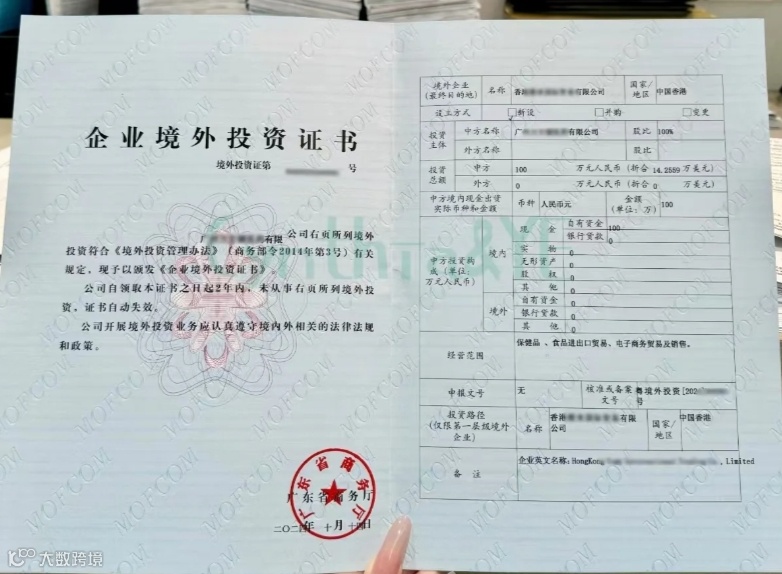 企业境外投资证书
境外投资证第 号
广 有限 公司右页所列境外
投资符合《境外投资管理办法》（商务部令2014年第3号）有关
规定，现予以颁发《企业境外投资证书》。
公司自领取本证书之日起2年内，未从事右页所列境外投
资，证书自动失效。
公司开展境外投资业务应认真遵守境内外相关的法律法规
和政策。
广东省商务厅
广东省商务厅
二〇二四年 十月 十四日
境外企业（最终目的地） 名称 香港 有限公司 国家/地区 中国香港
设立方式 □新设 □并购 □变更
投资主体 中方名称 广 有限公司 股比 100%
外方名称 股比
投资总额 中方 100 万元人民币（折合 14.2559 万美元）
外方 0 万元人民币（折合 0 万美元）
中方境内现金出资实际币种和金额 币种 人民币元 金额（单位：万） 100
中方投资构成（单位：万元人民币） 境内 现金 自有资金 100
银行贷款 0
实物 0
无形资产 0
股权 0
其他 0
境外 自有资金 0
银行贷款 0
其他 0
经营范围 保健品、食品进出口贸易、电子商务贸易及销售。
申报文号 无 核准或备案文号 粤境外投资[202 号
投资路径（仅限第一层级境外企业） 名称 香港 有限公司 国家/地区 中国香港
备注 企业英文名称:HongKong Limited
MOFCOM
大数跨境